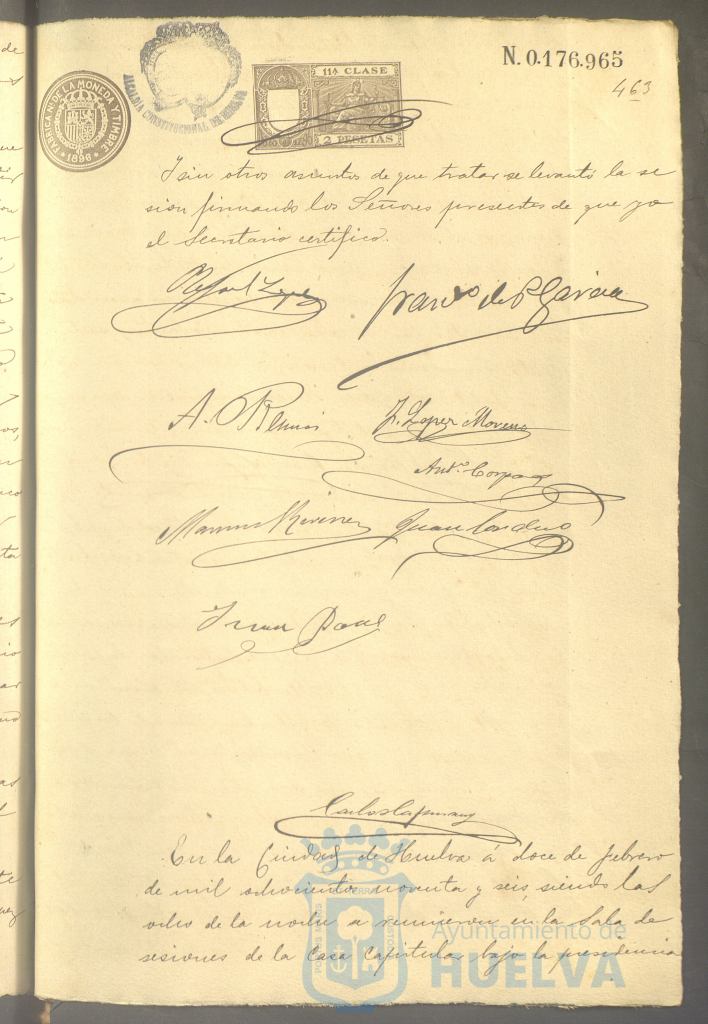 N. 0.176.965
463
11ª CLASE
2 PESETAS
FABRICA N. DE LA MONEDA Y TIMBRE
1896
ALCALDIA CONSTITUCIONAL DE HUELVA
Y sin otros asuntos de que tratar se levantó la se
sion firmando los Señores presentes de que yo
el Secretario certifico.
Rafael Lopez
Franco de P Garcia
A.
J. Lopez Moreno
Anto
Juan
Juan
Carlos
En la Ciudad de Huelva á doce de febrero
de mil ochocientos noventa y seis, siendo las
ocho de la noche se reunieron en la Sala de
sesiones de la Casa Capitular, bajo la presidencia
Ayuntamiento de
HUELVA